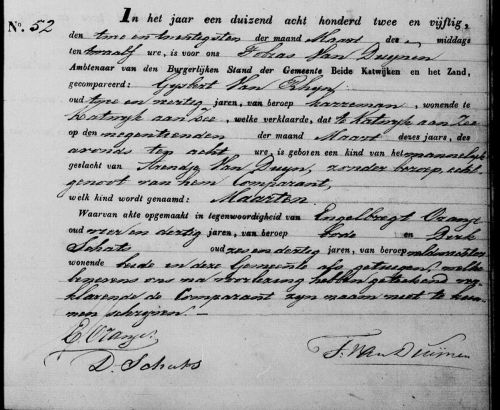 No. 52
In het jaar een duizend acht honderd twee en vijftig,
den twee en twintigsten der maand Maart des middags
ten twaalf ure, is voor ons Tobias Van Duijnen
Ambtenaar van den Burgerlijken Stand der Gemeente Beide Katwijken en het Zand,
gecompareerd: Gijsbert Van Rhijn
oud twee en dertig jaren, van beroep karreman, wonende te
Katwijk aan Zee, welke verklaarde, dat te Katwijk aan Zee
op den negentienden der maand Maart dezes jaars, des
avonds ten acht ure, is geboren een kind van het mannelijk
geslacht van Arendje Van Duyn, zonder beroep, echt-
genoot van hem Comparant,
welk kind wordt genaamd: Maarten.
Waarvan akte opgemaakt in tegenwoordigheid van Engelbregt Oranje
oud vier en dertig jaren, van beroep en Dirk
Schats oud zes en dertig jaren, van beroep veldwachter
wonende beide in deze Gemeente als getuigen, welke
benevens ons na voorlezing hebben geteekend ver-
klarende de Comparant zyn naam niet te kun-
nen schrijven.
E. Oranje.
D. Schats
T. Van Duijnen